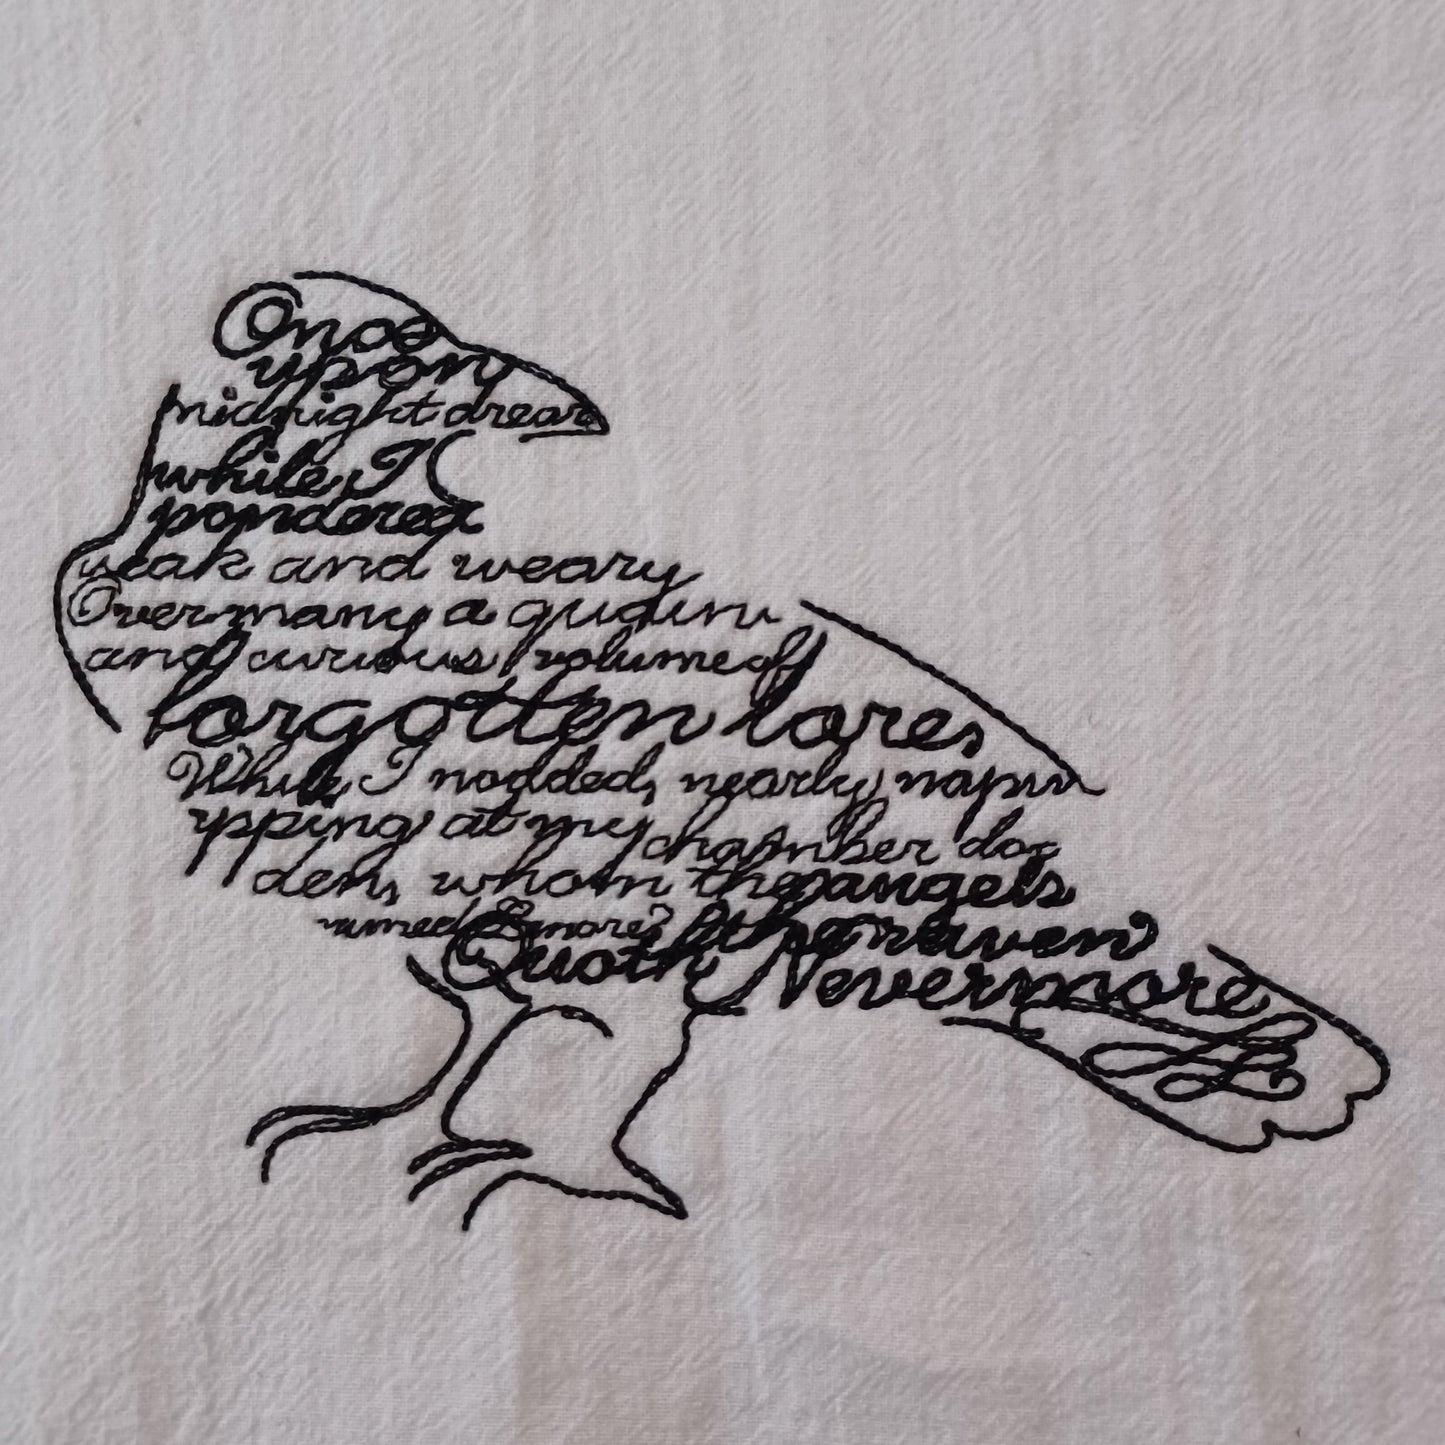 Once
upon
midnight drear
while I
pondered
weak and weary
Over many a
and curious volume of
forgotten lores
While I nodded, nearly napin
ypping at my chamber doo
den, whom the angels
named Lenore?
the raven
Quoth Nevermore